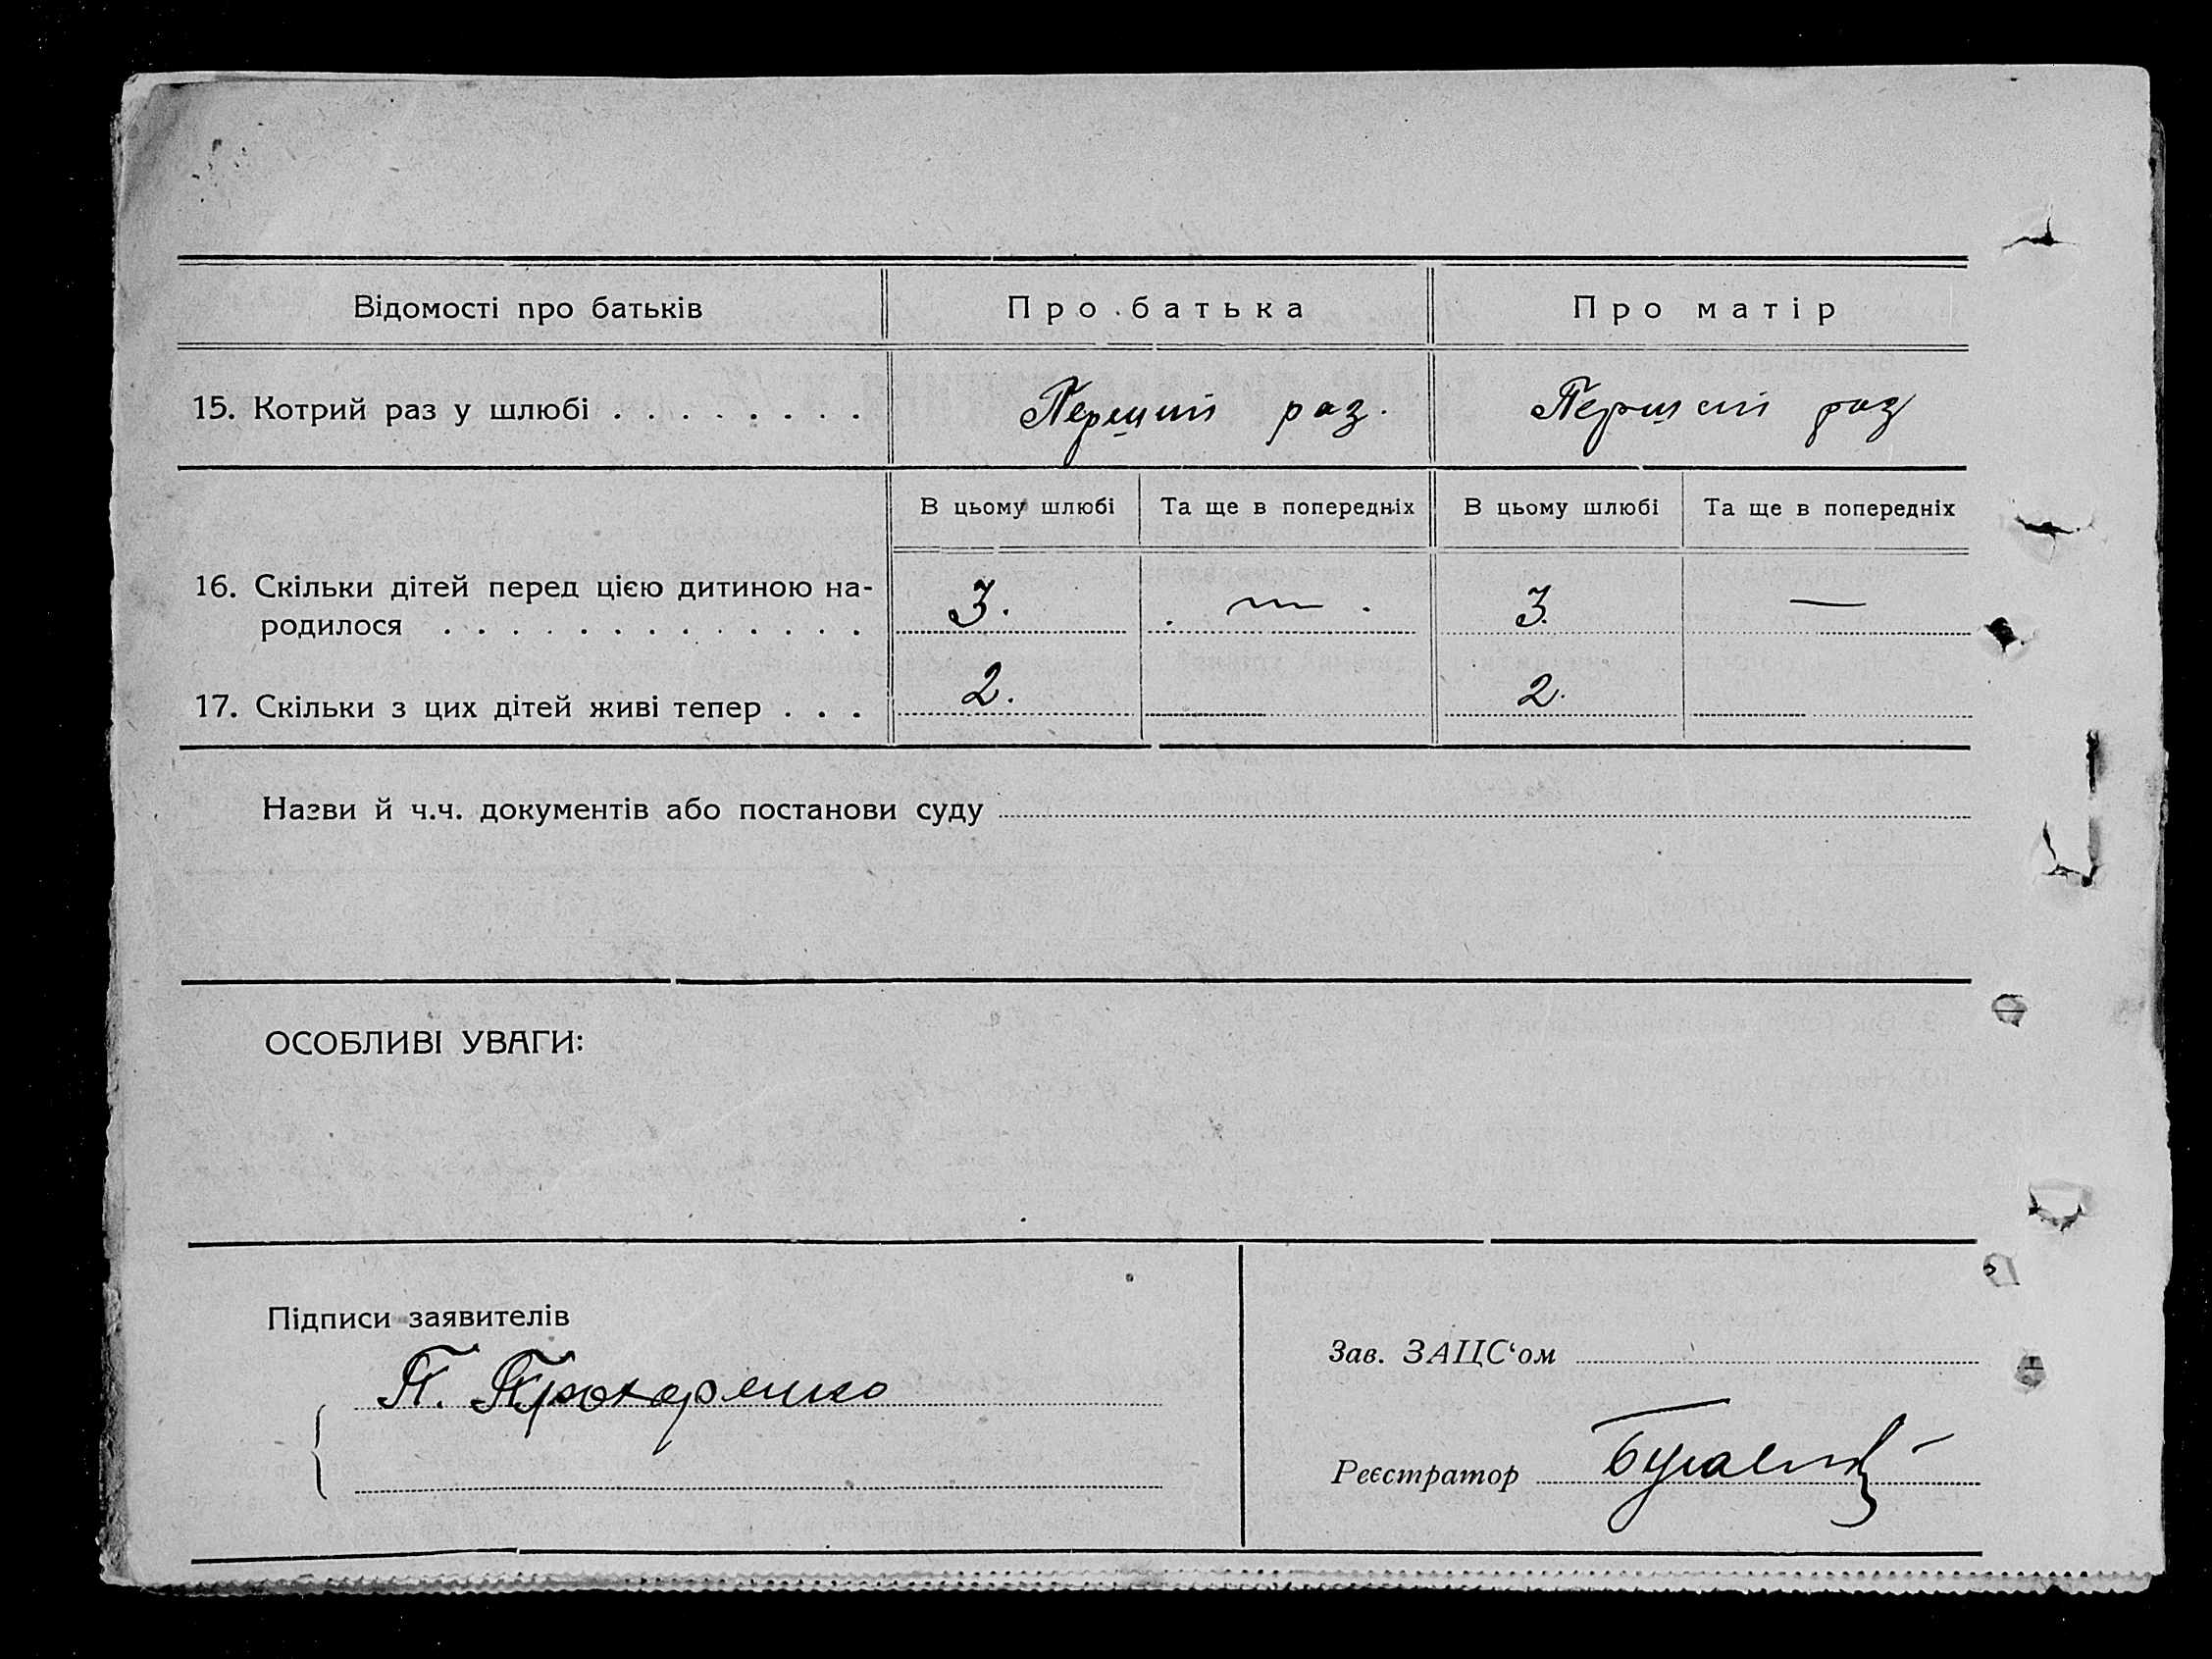 Відомості про батьків
Про батька
Про матір
15. Котрий раз у шлюбі . . . . . . . .
Перший раз.
Перший раз
В цьому шлюбі
Та ще в попередніх
В цьому шлюбі
Та ще в попередніх
16. Скільки дітей перед цією дитиною на-
родилося . . . . . . . . . . . . .
3.
—
3.
—
17. Скільки з цих дітей живі тепер . . .
2.
2.
Назви й ч.ч. документів або постанови суду
ОСОБЛИВІ УВАГИ:
Підписи заявителів
П. Прохаренко
Зав. ЗАЦС‘ом
Реєстратор